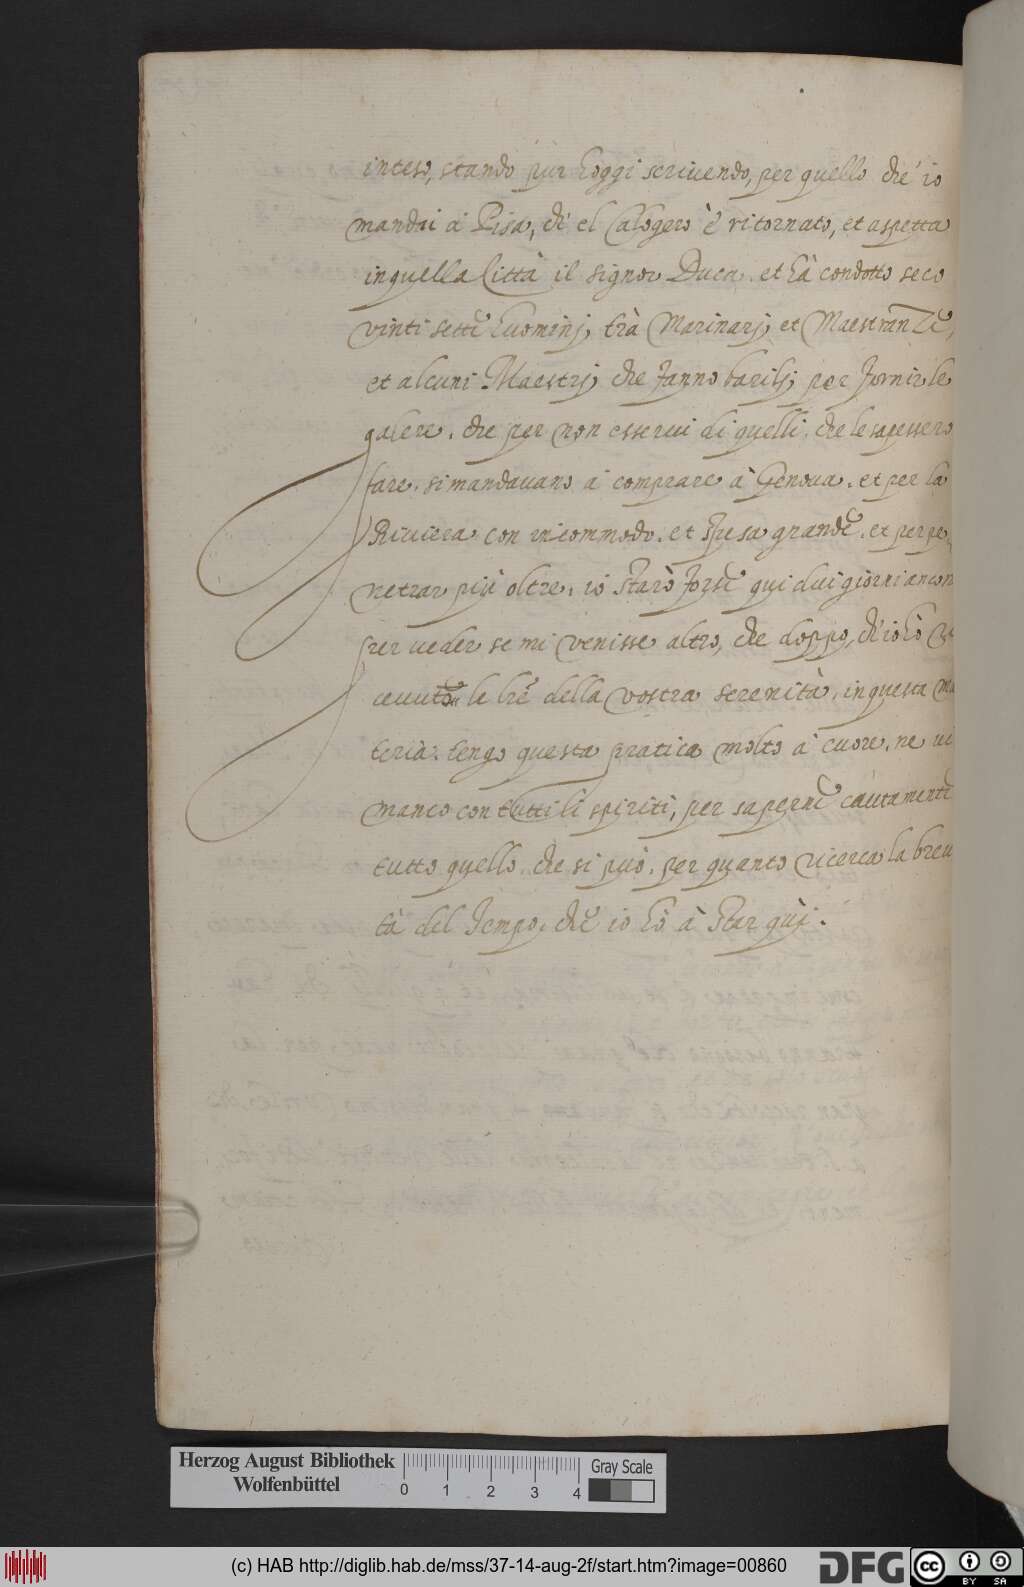 inteso, stando pur hoggi scriuendo, per quello che io
mandai à Pisa, ch' el Calogero è ritornato, et aspetta
in quella Città il signor Duca. et hà condotto seco
vinti sette huominj, trà Marinarj, et Maestranze,
et alcuni Maestrj, che fanno barilj, per fornir le
galere. che per non esserui di quelli, che le sapessero
fare, si mandauano à comprare à Genova, et per la
Riuiera con incommodo, et spesa grande, et per pe-
netrar più oltre, io starò forse qui dui giorni ancor
per ueder se mi venisse altro, che doppo, ch' io hò
ceuuto le lre della vostra serenità, in questa ma
teria. tengo questa pratica molto à cuore, ne
manco con tutti li spiriti, per saperne cautamente
tutto quello, che si può, per quanto ricerca la breui
tà del tempo, che io hò à star quì.
Herzog August Bibliothek
Wolfenbüttel
0 1 2 3 4
Gray Scale
(c) HAB http://diglib.hab.de/mss/37-14-aug-2f/start.htm?image=00860
DFG
cc BY SA